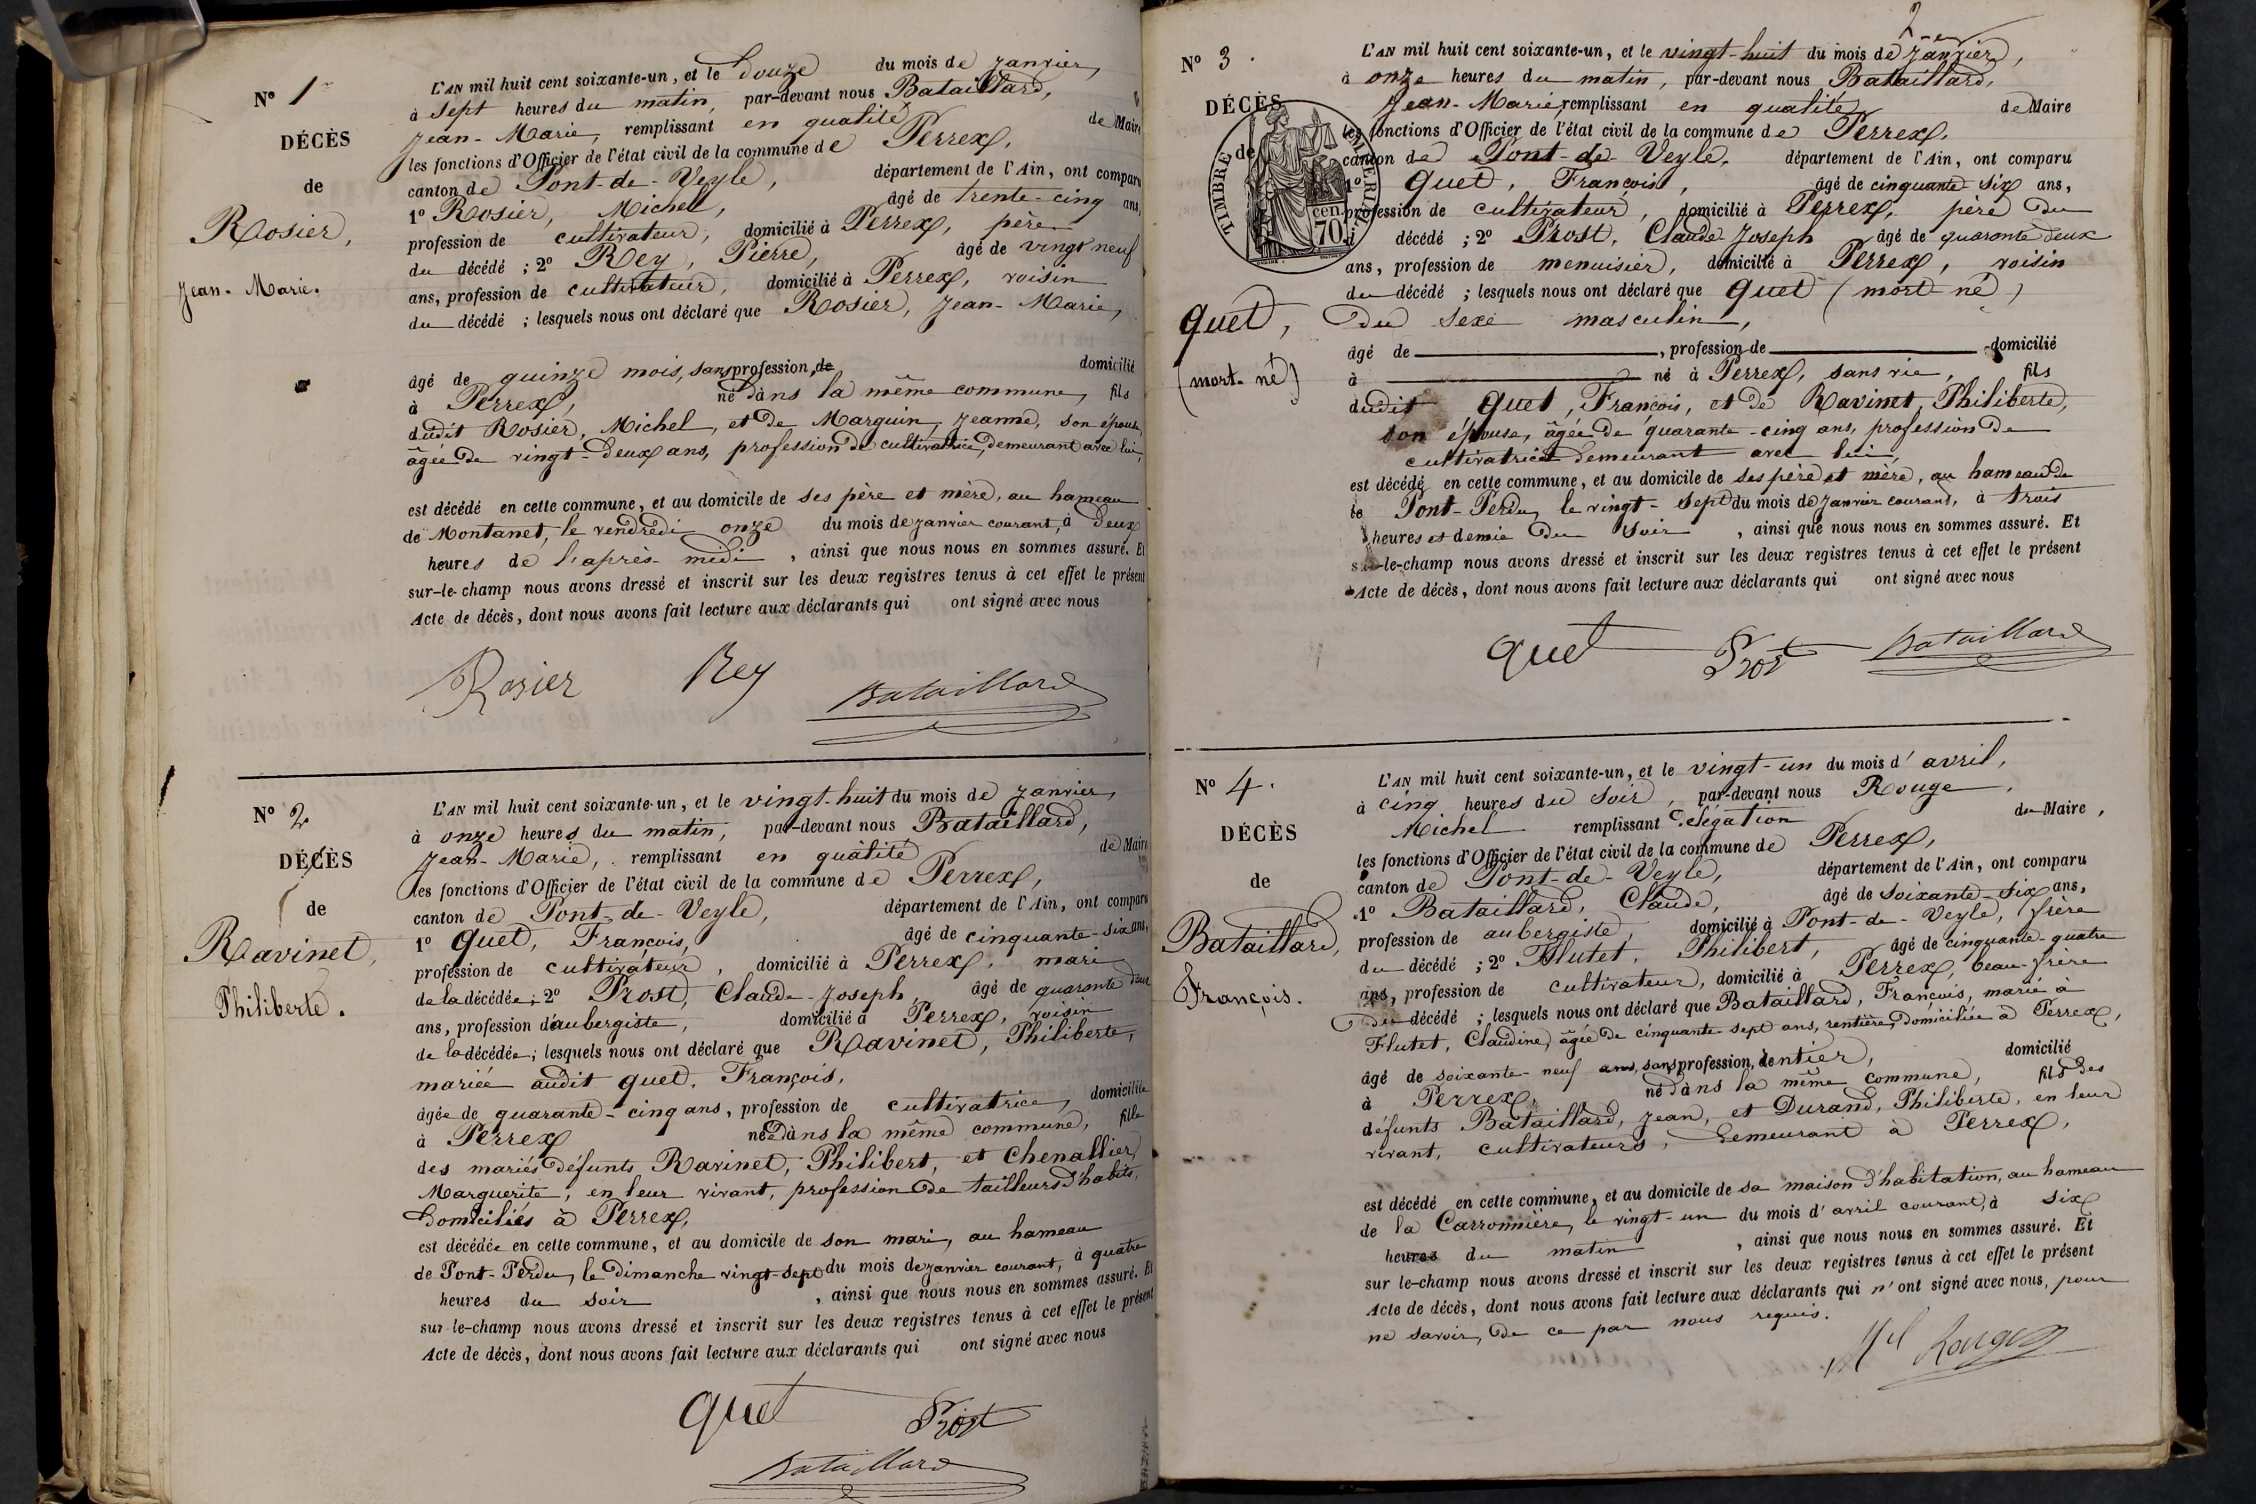 N° 1
DÉCÈS
de
Rosier,
Jean-Marie.
L'AN mil huit cent soixante-un, et le douze du mois de janvier,
à sept heures du matin, par-devant nous Bataillard,
Jean-Marie, remplissant en qualité de Maire
les fonctions d'Officier de l'état civil de la commune de Perrex,
canton de Pont-de-Veyle, département de l'Ain, ont comparu
1° Rosier, Michel, âgé de trente-cinq ans,
profession de cultivateur, domicilié à Perrex, père
du décédé ; 2° Rey, Pierre, âgé de vingt neuf
ans, profession de cultivateur, domicilié à Perrex, voisin
du décédé ; lesquels nous ont déclaré que Rosier, Jean-Marie,
âgé de quinze mois, sans profession, de domicilié
à Perrex, né dans la même commune, fils
dudit Rosier, Michel, et de Marguin, Jeanne, son épouse,
âgée de vingt-deux ans, profession de cultivatrice, demeurant avec lui,
est décédé en cette commune, et au domicile de ses père et mère, au hameau
de Montanet, le vendredi onze du mois de janvier courant, à deux
heures de l'après-midi, ainsi que nous nous en sommes assuré. Et
sur-le-champ nous avons dressé et inscrit sur les deux registres tenus à cet effet le présent
Acte de décès, dont nous avons fait lecture aux déclarants qui ont signé avec nous
Rosier Rey Bataillard
N° 2
DÉCÈS
de
Ravinet,
Philiberte.
L'AN mil huit cent soixante-un, et le vingt-huit du mois de janvier,
à onze heures du matin, par-devant nous Bataillard,
Jean-Marie, remplissant en qualité de Maire
les fonctions d'Officier de l'état civil de la commune de Perrex,
canton de Pont-de-Veyle, département de l'Ain, ont comparu
1° Quet, François, âgé de cinquante-six ans,
profession de cultivateur, domicilié à Perrex, mari
de la décédée ; 2° Prost, Claude-Joseph, âgé de quarante deux
ans, profession d'aubergiste, domicilié à Perrex, voisin
de la décédée ; lesquels nous ont déclaré que Ravinet, Philiberte,
mariée audit Quet, François,
âgée de quarante-cinq ans, profession de cultivatrice, domiciliée
à Perrex née dans la même commune, fille
des mariés défunts Ravinet, Philibert, et Chenallier,
Marguerite, en leur vivant, profession de tailleurs d'habits,
domiciliés à Perrex,
est décédée en cette commune, et au domicile de son mari, au hameau
de Pont-Perdu, le dimanche vingt-sept du mois de janvier courant, à quatre
heures du soir, ainsi que nous nous en sommes assuré. Et
sur le-champ nous avons dressé et inscrit sur les deux registres tenus à cet effet le présent
Acte de décès, dont nous avons fait lecture aux déclarants qui ont signé avec nous
Quet Prost
Bataillard
2
N° 3.
DÉCÈS
de
TIMBRE IMPERIAL
70 cen.
Quet,
(mort-né)
L'AN mil huit cent soixante-un, et le vingt-huit du mois de janvier,
à onze heures du matin, par-devant nous Bataillard,
Jean-Marie, remplissant en qualité de Maire
les fonctions d'Officier de l'état civil de la commune de Perrex,
canton de Pont-de-Veyle, département de l'Ain, ont comparu
1° Quet, François, âgé de cinquante-six ans,
profession de cultivateur, domicilié à Perrex, père du
décédé ; 2° Prost, Claude Joseph âgé de quarante deux
ans, profession de menuisier, domicilié à Perrex, voisin
du décédé ; lesquels nous ont déclaré que Quet (mort-né)
du sexe masculin,
âgé de , profession de domicilié
à né à Perrex, sans vie, fils
dudit Quet, François, et de Ravinet, Philiberte,
son épouse, âgée de quarante-cinq ans, profession de
cultivatrice demeurant avec lui,
est décédé en cette commune, et au domicile de ses père et mère, au hameau de
le Pont-Perdu, le vingt-sept du mois de janvier courant, à trois
heures et demie du soir, ainsi que nous nous en sommes assuré. Et
sur-le-champ nous avons dressé et inscrit sur les deux registres tenus à cet effet le présent
Acte de décès, dont nous avons fait lecture aux déclarants qui ont signé avec nous
Quet Prost Bataillard
N° 4.
DÉCÈS
de
Bataillard,
François.
L'AN mil huit cent soixante-un, et le vingt-un du mois d'avril,
à cinq heures du soir, par-devant nous Rouge,
Michel remplissant délégation du Maire,
les fonctions d'Officier de l'état civil de la commune de Perrex,
canton de Pont-de-Veyle, département de l'Ain, ont comparu
1° Bataillard, Claude, âgé de soixante-six ans,
profession de aubergiste, domicilié à Pont-de-Veyle, frère
du décédé ; 2° Flutet, Philibert, âgé de cinquante-quatre
ans, profession de cultivateur, domicilié à Perrex, beau-frère
du décédé ; lesquels nous ont déclaré que Bataillard, François, marié à
Flutet, Claudine, âgée de cinquante-sept ans, rentière, domiciliée à Perrex,
âgé de soixante-neuf ans, sans profession, de rentier, domicilié
à Perrex, né dans la même commune, fils des
défunts Bataillard, Jean, et Durand, Philiberte, en leur
vivant, cultivateurs, demeurant à Perrex,
est décédé en cette commune, et au domicile de sa maison d'habitation, au hameau
de la Carronnière, le vingt-un du mois d'avril courant, à six
heures du matin, ainsi que nous nous en sommes assuré. Et
sur le-champ nous avons dressé et inscrit sur les deux registres tenus à cet effet le présent
Acte de décès, dont nous avons fait lecture aux déclarants qui n'ont signé avec nous, pour
ne savoir, de ce par nous requis.
Mel Rouge